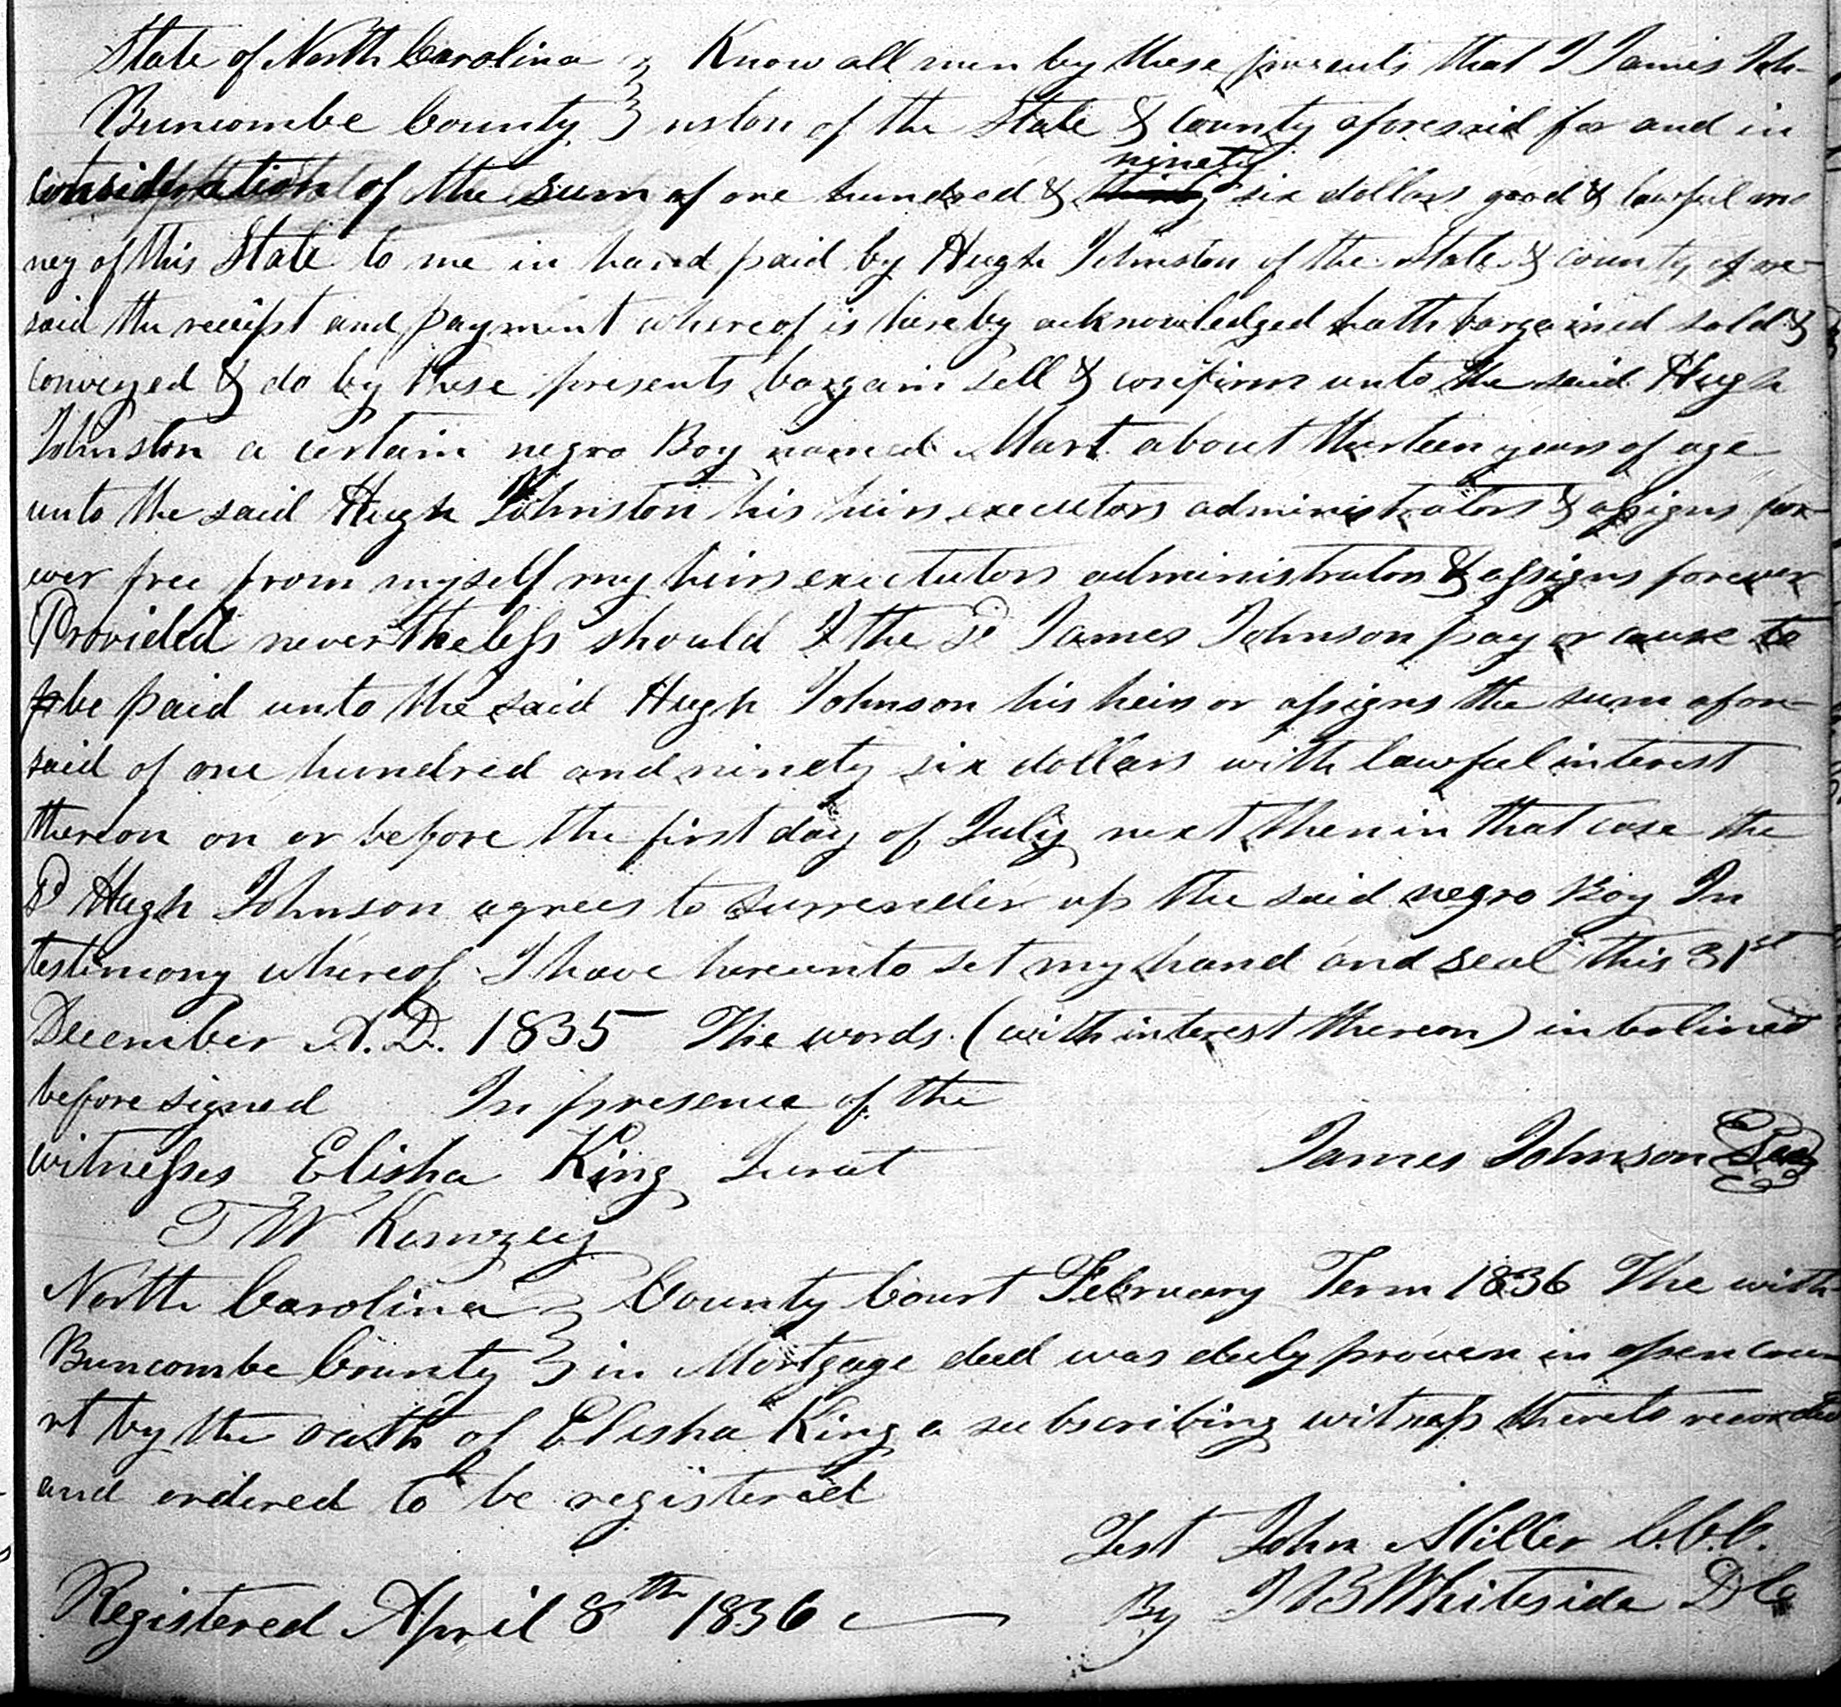 State of North Carolina } Know all men by these presents that I James Joh-
Buncombe County } nston of the State & County aforesaid for and in
consideration of the sum of one hundred & ninety six dollars good & lawful mo
ney of this State to me in hand paid by Hugh Johnston of the State & county afore-
said the receipt and payment whereof is hereby acknowledged hath bargained sold &
conveyed & do by these presents bargain sell & confirm unto the said Hugh
Johnston a certain negro Boy named Mart about thirteen years of age
unto the said Hugh Johnston his heirs executors administrators & assigns for-
ever free from myself my heirs executators administrators & assigns forever
Provided nevertheless should I the Sd James Johnson pay or cause to
be paid unto the said Hugh Johnson his heirs or assigns the sum afore-
said of one hundred and ninety six dollars with lawful interest
thereon on or before the first day of July next then in that case the
Sd Hugh Johnson agrees to surrender up the said negro Boy In
testimony whereof I have hereunto set my hand and seal this 31st
December A.D. 1835 The words (with interest thereon) interlined
before signed In presence of the
witnesses Elisha King Jurat James Johnson Seal
T W
North Carolina } County Court February Term 1836 The with
Buncombe County } in Mortgage deed was duly proven in open cou
rt by the oath of Elisha King a subscribing witness thereto recorded
and ordered to be registered
Test John Miller C.C.C.
Registered April 8th 1836 By J B Whiteside D C